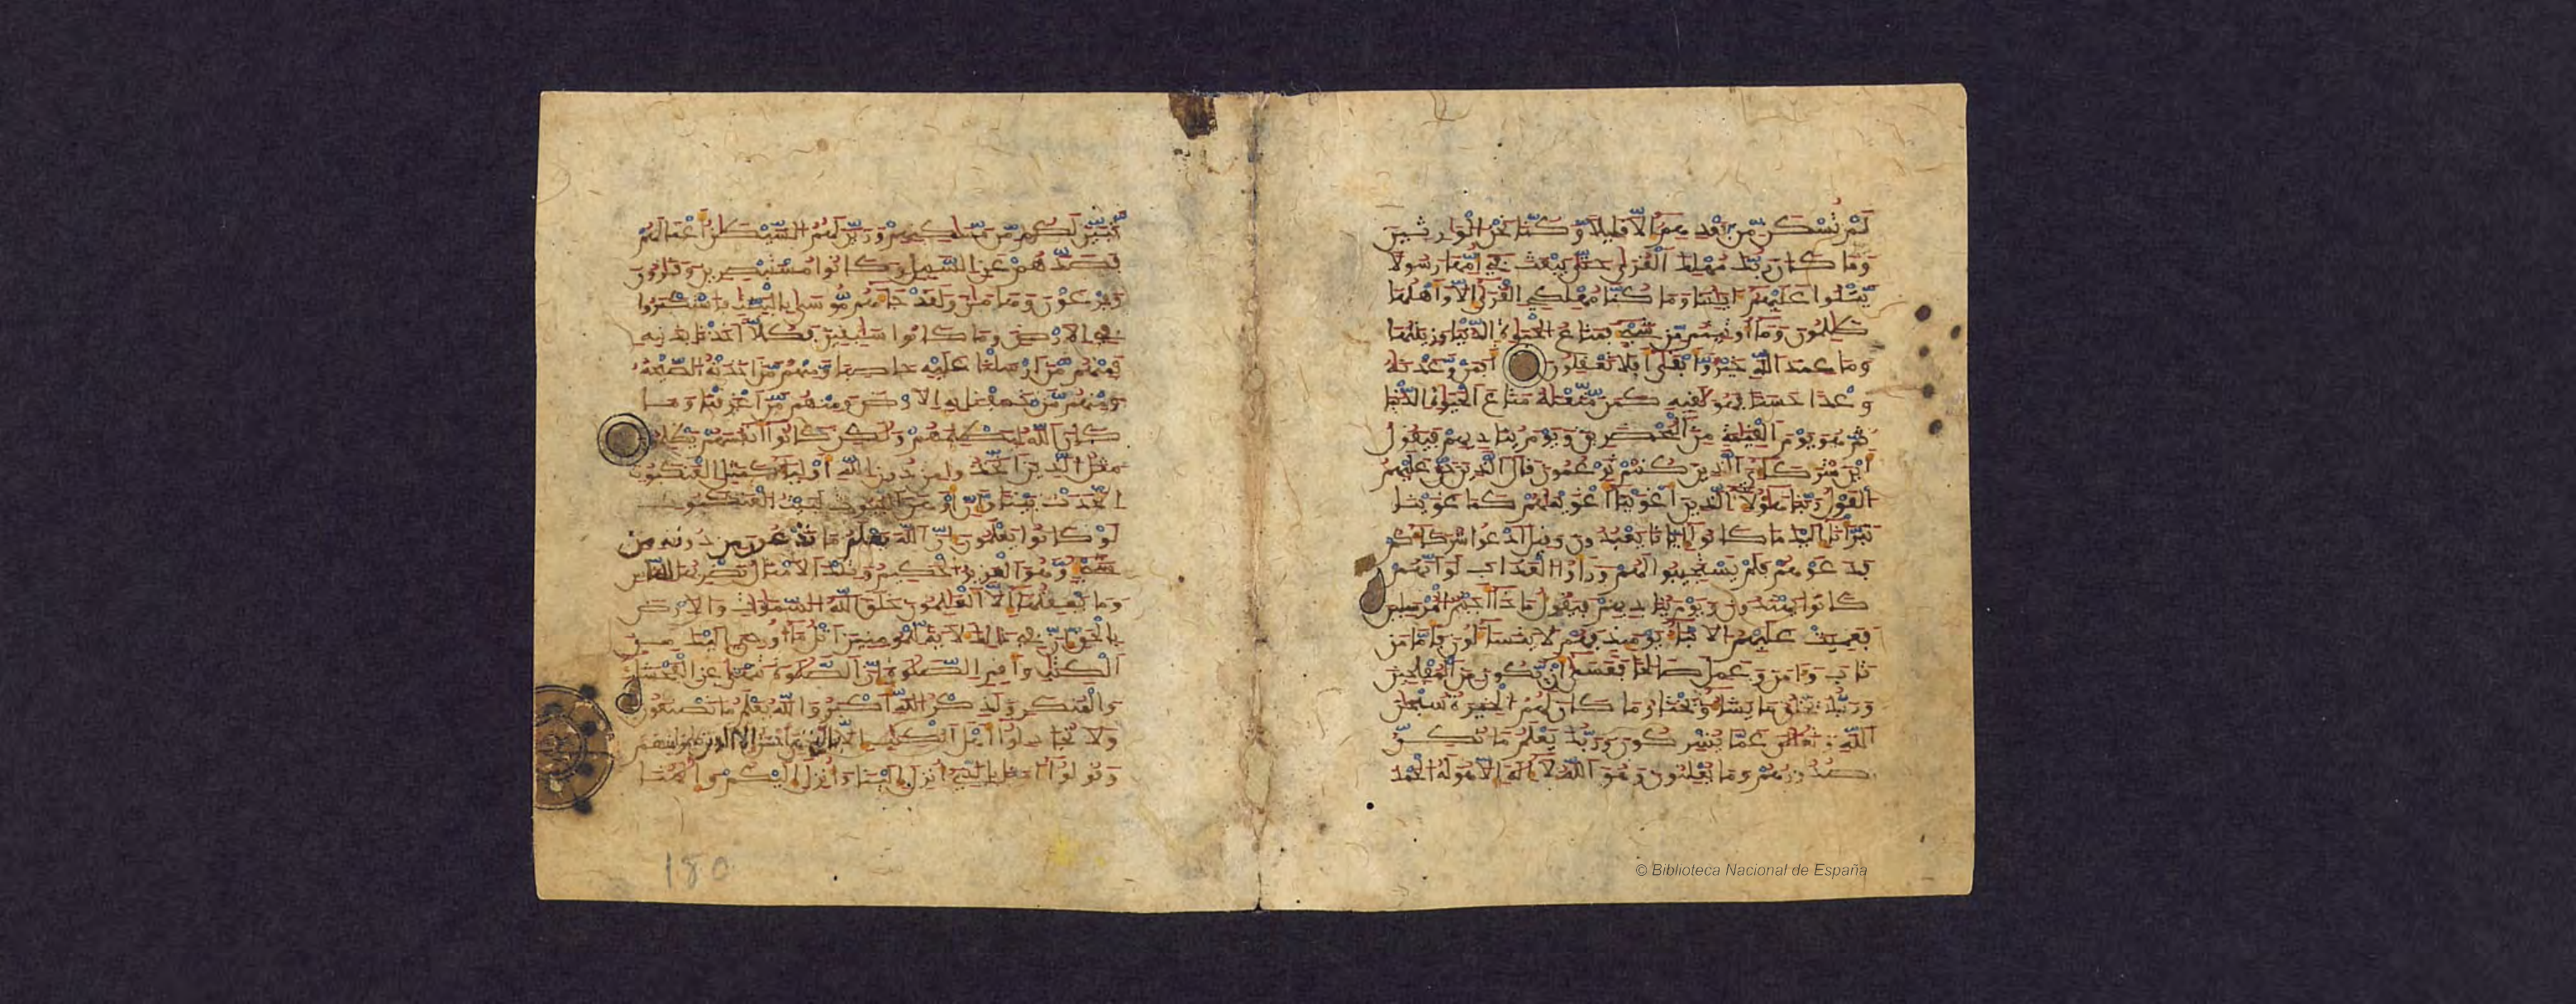 لَمْ تُسْكَن مِّنۢ بَعْدِهِمْ إِلَّا قَلِيلًا وَكُنَّا نَحْنُ الْوَارِثِينَ
وَمَا كَانَ رَبُّكَ مُهْلِكَ الْقُرَىٰ حَتَّىٰ يَبْعَثَ فِي أُمِّهَا رَسُولًا
يَتْلُوا عَلَيْهِمُ ءَايَٰتِنَا وَمَا كُنَّا مُهْلِكِي الْقُرَىٰ إِلَّا وَأَهْلُهَا
ظَٰلِمُونَ وَمَا أُوتِيتُم مِّن شَيْءٍ فَمَتَٰعُ الْحَيَوٰةِ الدُّنْيَا وَزِينَتُهَا
وَمَا عِندَ اللَّهِ خَيْرٌ وَأَبْقَىٰ أَفَلَا تَعْقِلُونَ أَفَمَن وَعَدْنَٰهُ
وَعْدًا حَسَنًا فَهُوَ لَٰقِيهِ كَمَن مَّتَّعْنَٰهُ مَتَٰعَ الْحَيَوٰةِ الدُّنْيَا
ثُمَّ هُوَ يَوْمَ الْقِيَٰمَةِ مِنَ الْمُحْضَرِينَ وَيَوْمَ يُنَادِيهِمْ فَيَقُولُ
أَيْنَ شُرَكَاءِيَ الَّذِينَ كُنتُمْ تَزْعُمُونَ قَالَ الَّذِينَ حَقَّ عَلَيْهِمُ
الْقَوْلُ رَبَّنَا هَٰؤُلَاءِ الَّذِينَ أَغْوَيْنَا أَغْوَيْنَٰهُمْ كَمَا غَوَيْنَا
تَبَرَّأْنَا إِلَيْكَ مَا كَانُوا إِيَّانَا يَعْبُدُونَ وَقِيلَ ادْعُوا شُرَكَاءَكُمْ
فَدَعَوْهُمْ فَلَمْ يَسْتَجِيبُوا لَهُمْ وَرَأَوُا الْعَذَابَ لَوْ أَنَّهُمْ
كَانُوا يَهْتَدُونَ وَيَوْمَ يُنَادِيهِمْ فَيَقُولُ مَاذَا أَجَبْتُمُ الْمُرْسَلِينَ
فَعَمِيَتْ عَلَيْهِمُ الْأَنبَاءُ يَوْمَئِذٍ فَهُمْ لَا يَتَسَاءَلُونَ فَأَمَّا مَن
تَابَ وَءَامَنَ وَعَمِلَ صَالِحًا فَعَسَىٰ أَن يَكُونَ مِنَ الْمُفْلِحِينَ
وَرَبُّكَ يَخْلُقُ مَا يَشَاءُ وَيَخْتَارُ مَا كَانَ لَهُمُ الْخِيَرَةُ سُبْحَٰنَ
اللَّهِ وَتَعَٰلَىٰ عَمَّا يُشْرِكُونَ وَرَبُّكَ يَعْلَمُ مَا تُكِنُّ
صُدُورُهُمْ وَمَا يُعْلِنُونَ وَهُوَ اللَّهُ لَا إِلَٰهَ إِلَّا هُوَ لَهُ الْحَمْدُ
تَّبَيَّنَ لَكُم مِّن مَّسَٰكِنِهِمْ وَزَيَّنَ لَهُمُ الشَّيْطَٰنُ أَعْمَٰلَهُمْ
فَصَدَّهُمْ عَنِ السَّبِيلِ وَكَانُوا مُسْتَبْصِرِينَ وَقَٰرُونَ
وَفِرْعَوْنَ وَهَٰمَٰنَ وَلَقَدْ جَاءَهُم مُّوسَىٰ بِالْبَيِّنَٰتِ فَاسْتَكْبَرُوا
فِي الْأَرْضِ وَمَا كَانُوا سَٰبِقِينَ فَكُلًّا أَخَذْنَا بِذَنۢبِهِ
فَمِنْهُم مَّنْ أَرْسَلْنَا عَلَيْهِ حَاصِبًا وَمِنْهُم مَّنْ أَخَذَتْهُ الصَّيْحَةُ
وَمِنْهُم مَّنْ خَسَفْنَا بِهِ الْأَرْضَ وَمِنْهُم مَّنْ أَغْرَقْنَا وَمَا
كَانَ اللَّهُ لِيَظْلِمَهُمْ وَلَٰكِن كَانُوا أَنفُسَهُمْ يَظْلِمُونَ
مَثَلُ الَّذِينَ اتَّخَذُوا مِن دُونِ اللَّهِ أَوْلِيَاءَ كَمَثَلِ الْعَنكَبُوتِ
اتَّخَذَتْ بَيْتًا وَإِنَّ أَوْهَنَ الْبُيُوتِ لَبَيْتُ الْعَنكَبُوتِ
لَوْ كَانُوا يَعْلَمُونَ إِنَّ اللَّهَ يَعْلَمُ مَا تَدْعُونَ مِن دُونِهِ مِن
شَيْءٍ وَهُوَ الْعَزِيزُ الْحَكِيمُ وَتِلْكَ الْأَمْثَٰلُ نَضْرِبُهَا لِلنَّاسِ
وَمَا يَعْقِلُهَا إِلَّا الْعَٰلِمُونَ خَلَقَ اللَّهُ السَّمَٰوَٰتِ وَالْأَرْضَ
بِالْحَقِّ إِنَّ فِي ذَٰلِكَ لَءَايَةً لِّلْمُؤْمِنِينَ اتْلُ مَا أُوحِيَ إِلَيْكَ مِنَ
الْكِتَٰبِ وَأَقِمِ الصَّلَوٰةَ إِنَّ الصَّلَوٰةَ تَنْهَىٰ عَنِ الْفَحْشَاءِ
وَالْمُنكَرِ وَلَذِكْرُ اللَّهِ أَكْبَرُ وَاللَّهُ يَعْلَمُ مَا تَصْنَعُونَ
وَلَا تُجَٰدِلُوا أَهْلَ الْكِتَٰبِ إِلَّا بِالَّتِي هِيَ أَحْسَنُ إِلَّا الَّذِينَ ظَلَمُوا مِنْهُمْ
وَقُولُوا ءَامَنَّا بِالَّذِي أُنزِلَ إِلَيْنَا وَأُنزِلَ إِلَيْكُمْ وَإِلَٰهُنَا
180
© Biblioteca Nacional de España